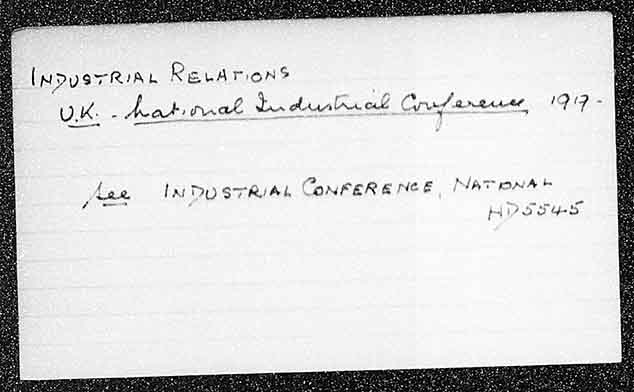 INDUSTRIAL RELATIONS
U.K. - National Industrial Conference 1919 -
see INDUSTRIAL CONFERENCE, NATIONAL
HD5545